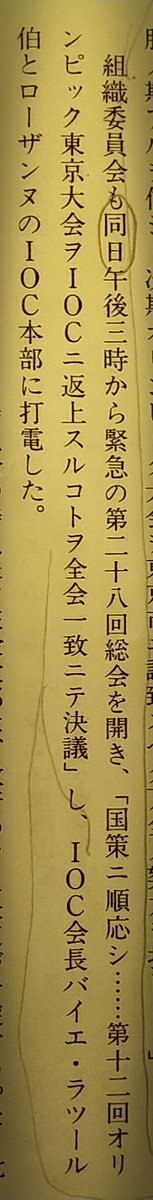 組織委員会も同日午後三時から緊急の第二十八回総会を開き、「国策ニ順応シ……第十二回オリ
ンピック東京大会ヲIOCニ返上スルコトヲ全会一致ニテ決議」し、IOC会長バイエ・ラツール
伯とローザンヌのIOC本部に打電した。